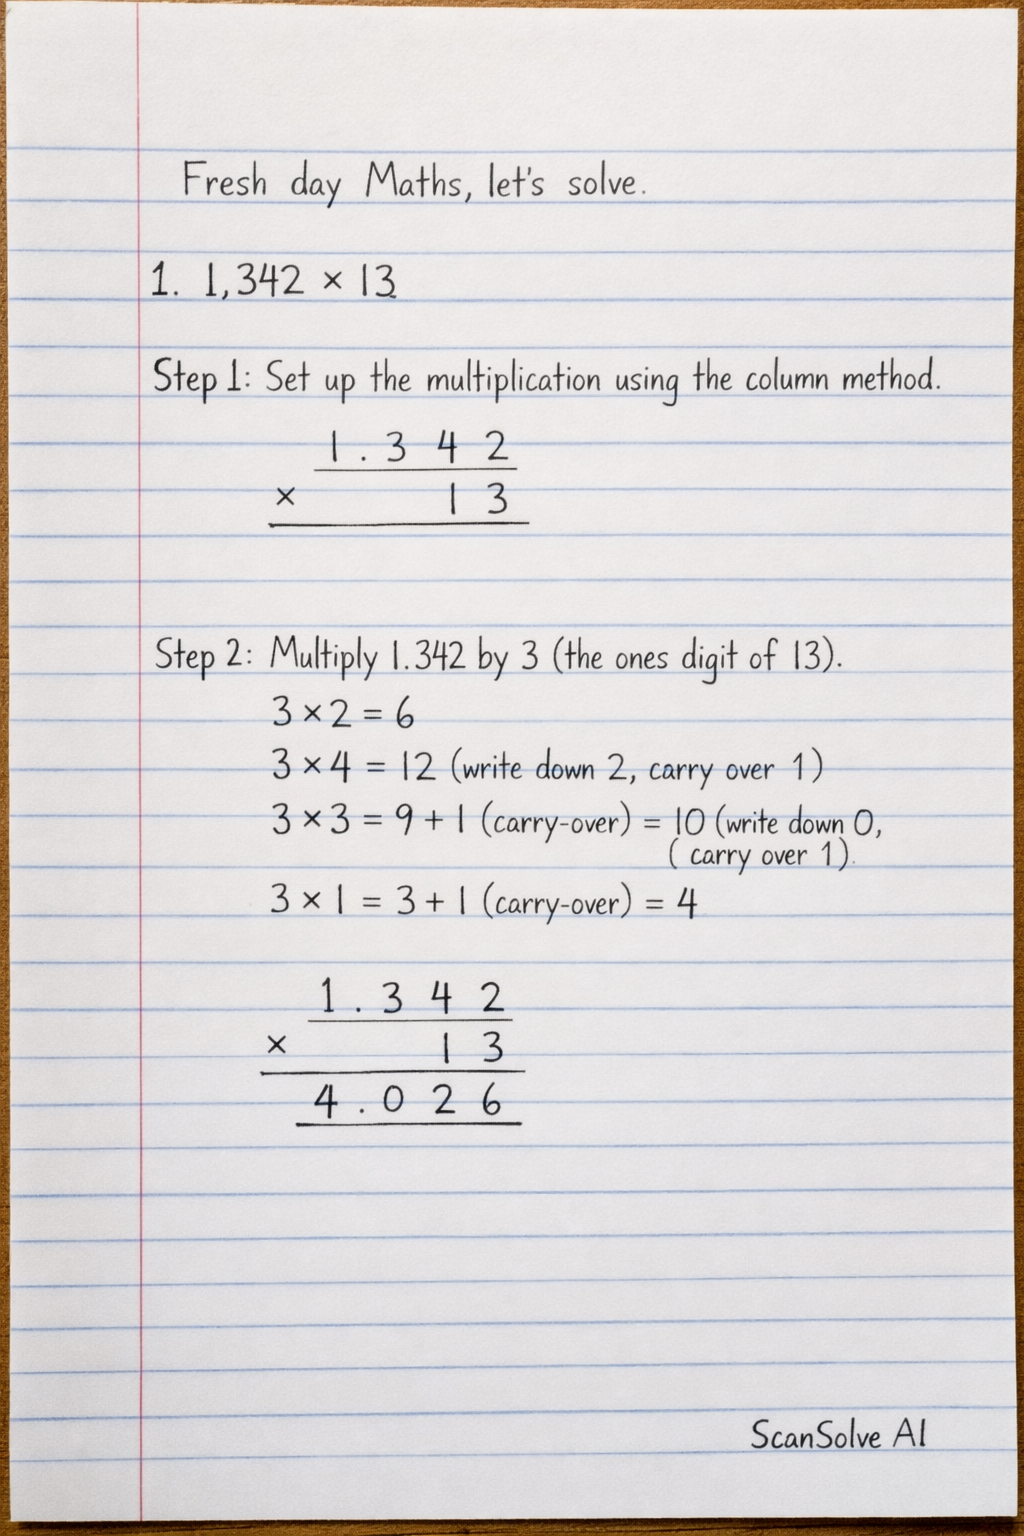 Fresh day Maths, let's solve.
1. 1,342 × 13
Step 1: Set up the multiplication using the column method.
1 . 3 4 2
× 1 3
Step 2: Multiply 1.342 by 3 (the ones digit of 13).
3 × 2 = 6
3 × 4 = 12 (write down 2, carry over 1)
3 × 3 = 9 + 1 (carry-over) = 10 (write down 0,
( carry over 1).
3 × 1 = 3 + 1 (carry-over) = 4
1 . 3 4 2
× 1 3
4 . 0 2 6
ScanSolve AI